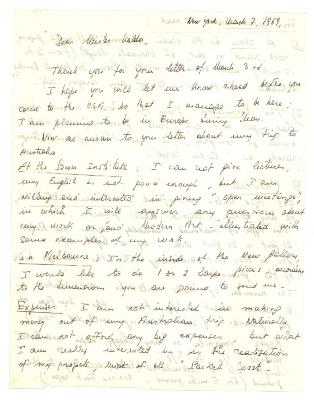 New York, March 7, 1969.
Dear Mister Kaldor,
Thank you for your letter of March 3rd.
I hope you will let me know ahead before you
come to the USA. so that I manage to be here:
I am planning to be in Europe during
Now as answer to your letter about my trip to
Australia
At the Power Institute: I can not give lectures,
my English is not good enough, but I am
willing and interested in giving "open meetings",
in which I will answer any questions about
my work or and Modern Art. illustrated with
some examples of my work.
in Melbourne: In the inside of the New gallery,
I would like to do 1 or 2 large pieces according
to the dimensions you are going to send me.
Expenses: I am not interested in making
money out of my Australian trip. Naturally
I can not afford any big expenses but what
I am really interested in is the realisations
of my projects, most of all "Packed Coast".